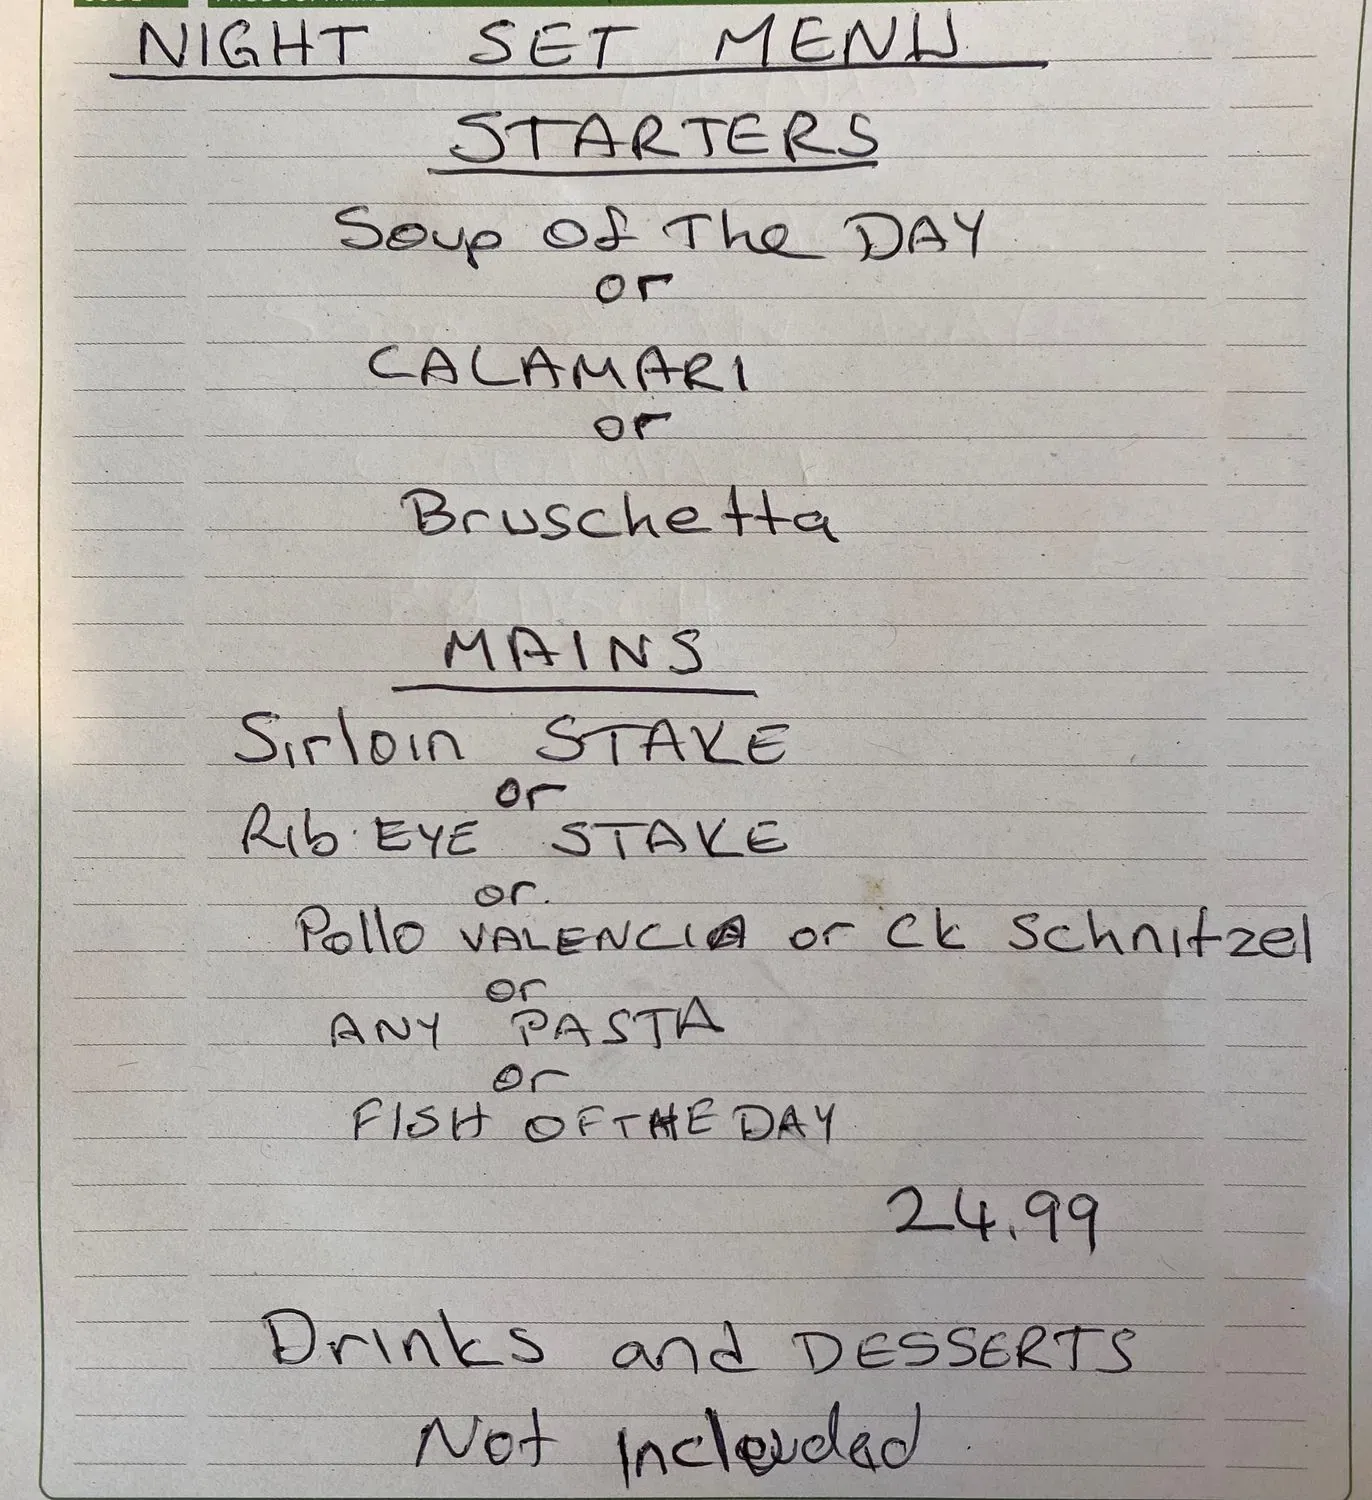 NIGHT SET MENU
STARTERS
Soup Of The DAY
or
CALAMARI
or
Bruschetta
MAINS
Sirloin STAKE
or
Rib. EYE STAKE
or.
Pollo VALENCIA or CK Schnitzel
or
ANY PASTA
or
FISH OF THE DAY
24.99
Drinks and DESSERTS
Not Included.